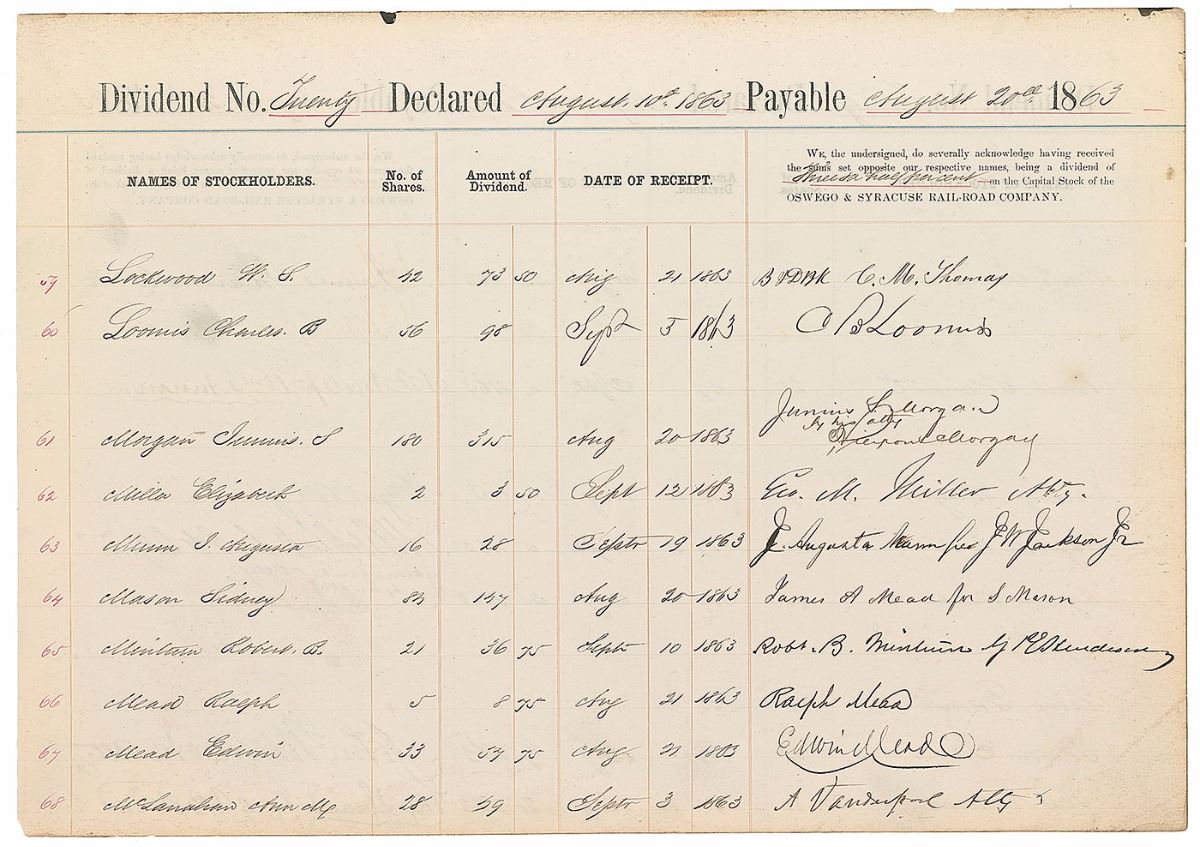 Dividend No. Twenty Declared August 10th 1863 Payable August 20th 1863
NAMES OF STOCKHOLDERS. No. of Shares. Amount of Dividend. DATE OF RECEIPT. WE, the undersigned, do severally acknowledge having received
the sums set opposite our respective names, being a dividend of
Three & a half per cent on the Capital Stock of the
OSWEGO & SYRACUSE RAIL-ROAD COMPANY.
59 Lockwood W. S. 42 73 50 Aug 21 1863 C. M. Thomas
60 Loomis Charles. B 56 98 Sept 5 1863 C B Loomis
Junius S Morgan
by his atty
61 Morgan Junius. S 180 315 Aug 20 1863 J Pierpont Morgan
62 Miller Elizabeth 2 3 50 Sept 12 1863 Geo. M. Miller Atty.
63 Munn J. Augusta 16 28 Septr 19 1863 J. Augusta Munn per J W Jackson Jr
64 Mason Sidney 84 147 Aug 20 1863 James A Mead for S Mason
65 Minturn Robert. B. 21 36 75 Septr 10 1863 Robt. B. Minturn by
66 Mead Ralph 5 8 75 Aug 21 1863 Ralph Mead
67 Mead Edwin 33 57 75 Aug. 21 1863 Edwin Mead
68 McLanahan Ann Mc 28 49 Septr 3 1863 A Vanderpoel Atty